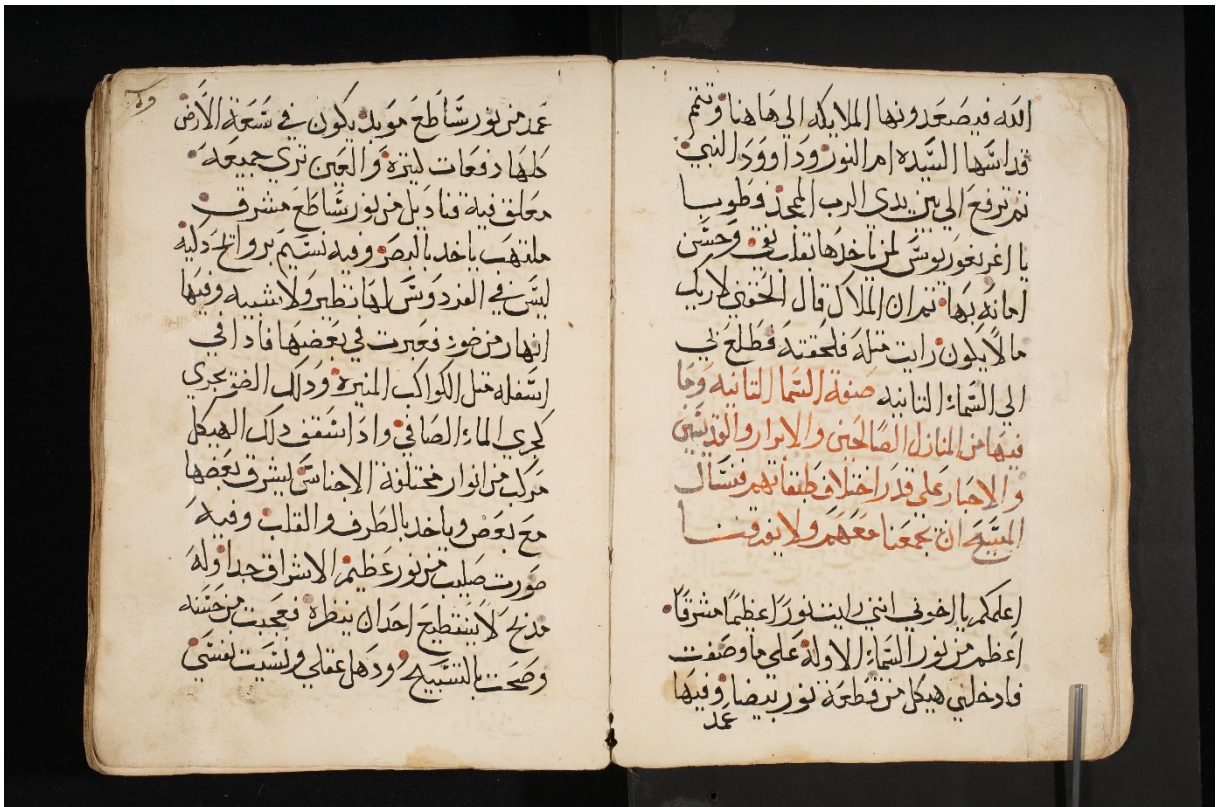 الله فيصعدونها الملايكه الي هاهنا وتتم
قداسها السيده ام النور وداوود النبي
تم ترفع الي بين يدي الرب الممجد فطوبا
يا اغريغوريوس لمن ياخدها بقلب نقي وحسن
امانه بها تم ان الملاك قال الحقني لاريك
مالا يكون رايت متله فلحقته فطلع بي
الي السماء التانيه صفة السما التانيه وما
فيها من المنازل الصالحين والابرار والقديسين
والاحبار علي قدر اختلاف طبقاتهم فنسال
المسيح ان يجمعنا معهم ولا يفرقنا
اعلمكم يا اخوتي انني رايت نورا عظيما مشرقا
اعظم من نور السماء الاوله علي ما وصفت
فادخلني هيكل من قطعة نور بيضا وفيها
عمد
عمد من نور شاطع مويد يكون في سعة الارض
كلها دفعات كتيره والعين تري جميعه
معلق فيه قناديل من نور شاطع مشرف
ملتهب ياخد بالبصر وفيه نسيم بروايح دكيه
ليس في الفردوس لها نظير ولا شبيه وفيها
انهار من ضو فعبرت في بعضها فادا في
اسفله متل الكواكب المنيره ودلك الضو يجري
كجري الماء الصافي وادا سقف دلك الهيكل
مركب من انوار مختلفة الاجناس يشرق بعضها
مع بعض وياخد بالطرف والقلب وفيه
صورت صليب من نور عظيم الاشراق جدا وله
مدبح لا يستطيع احدا ان ينظره فعجبت من حسنه
وصحت بالتسبيح ودهل عقلي ونسيت نفسي